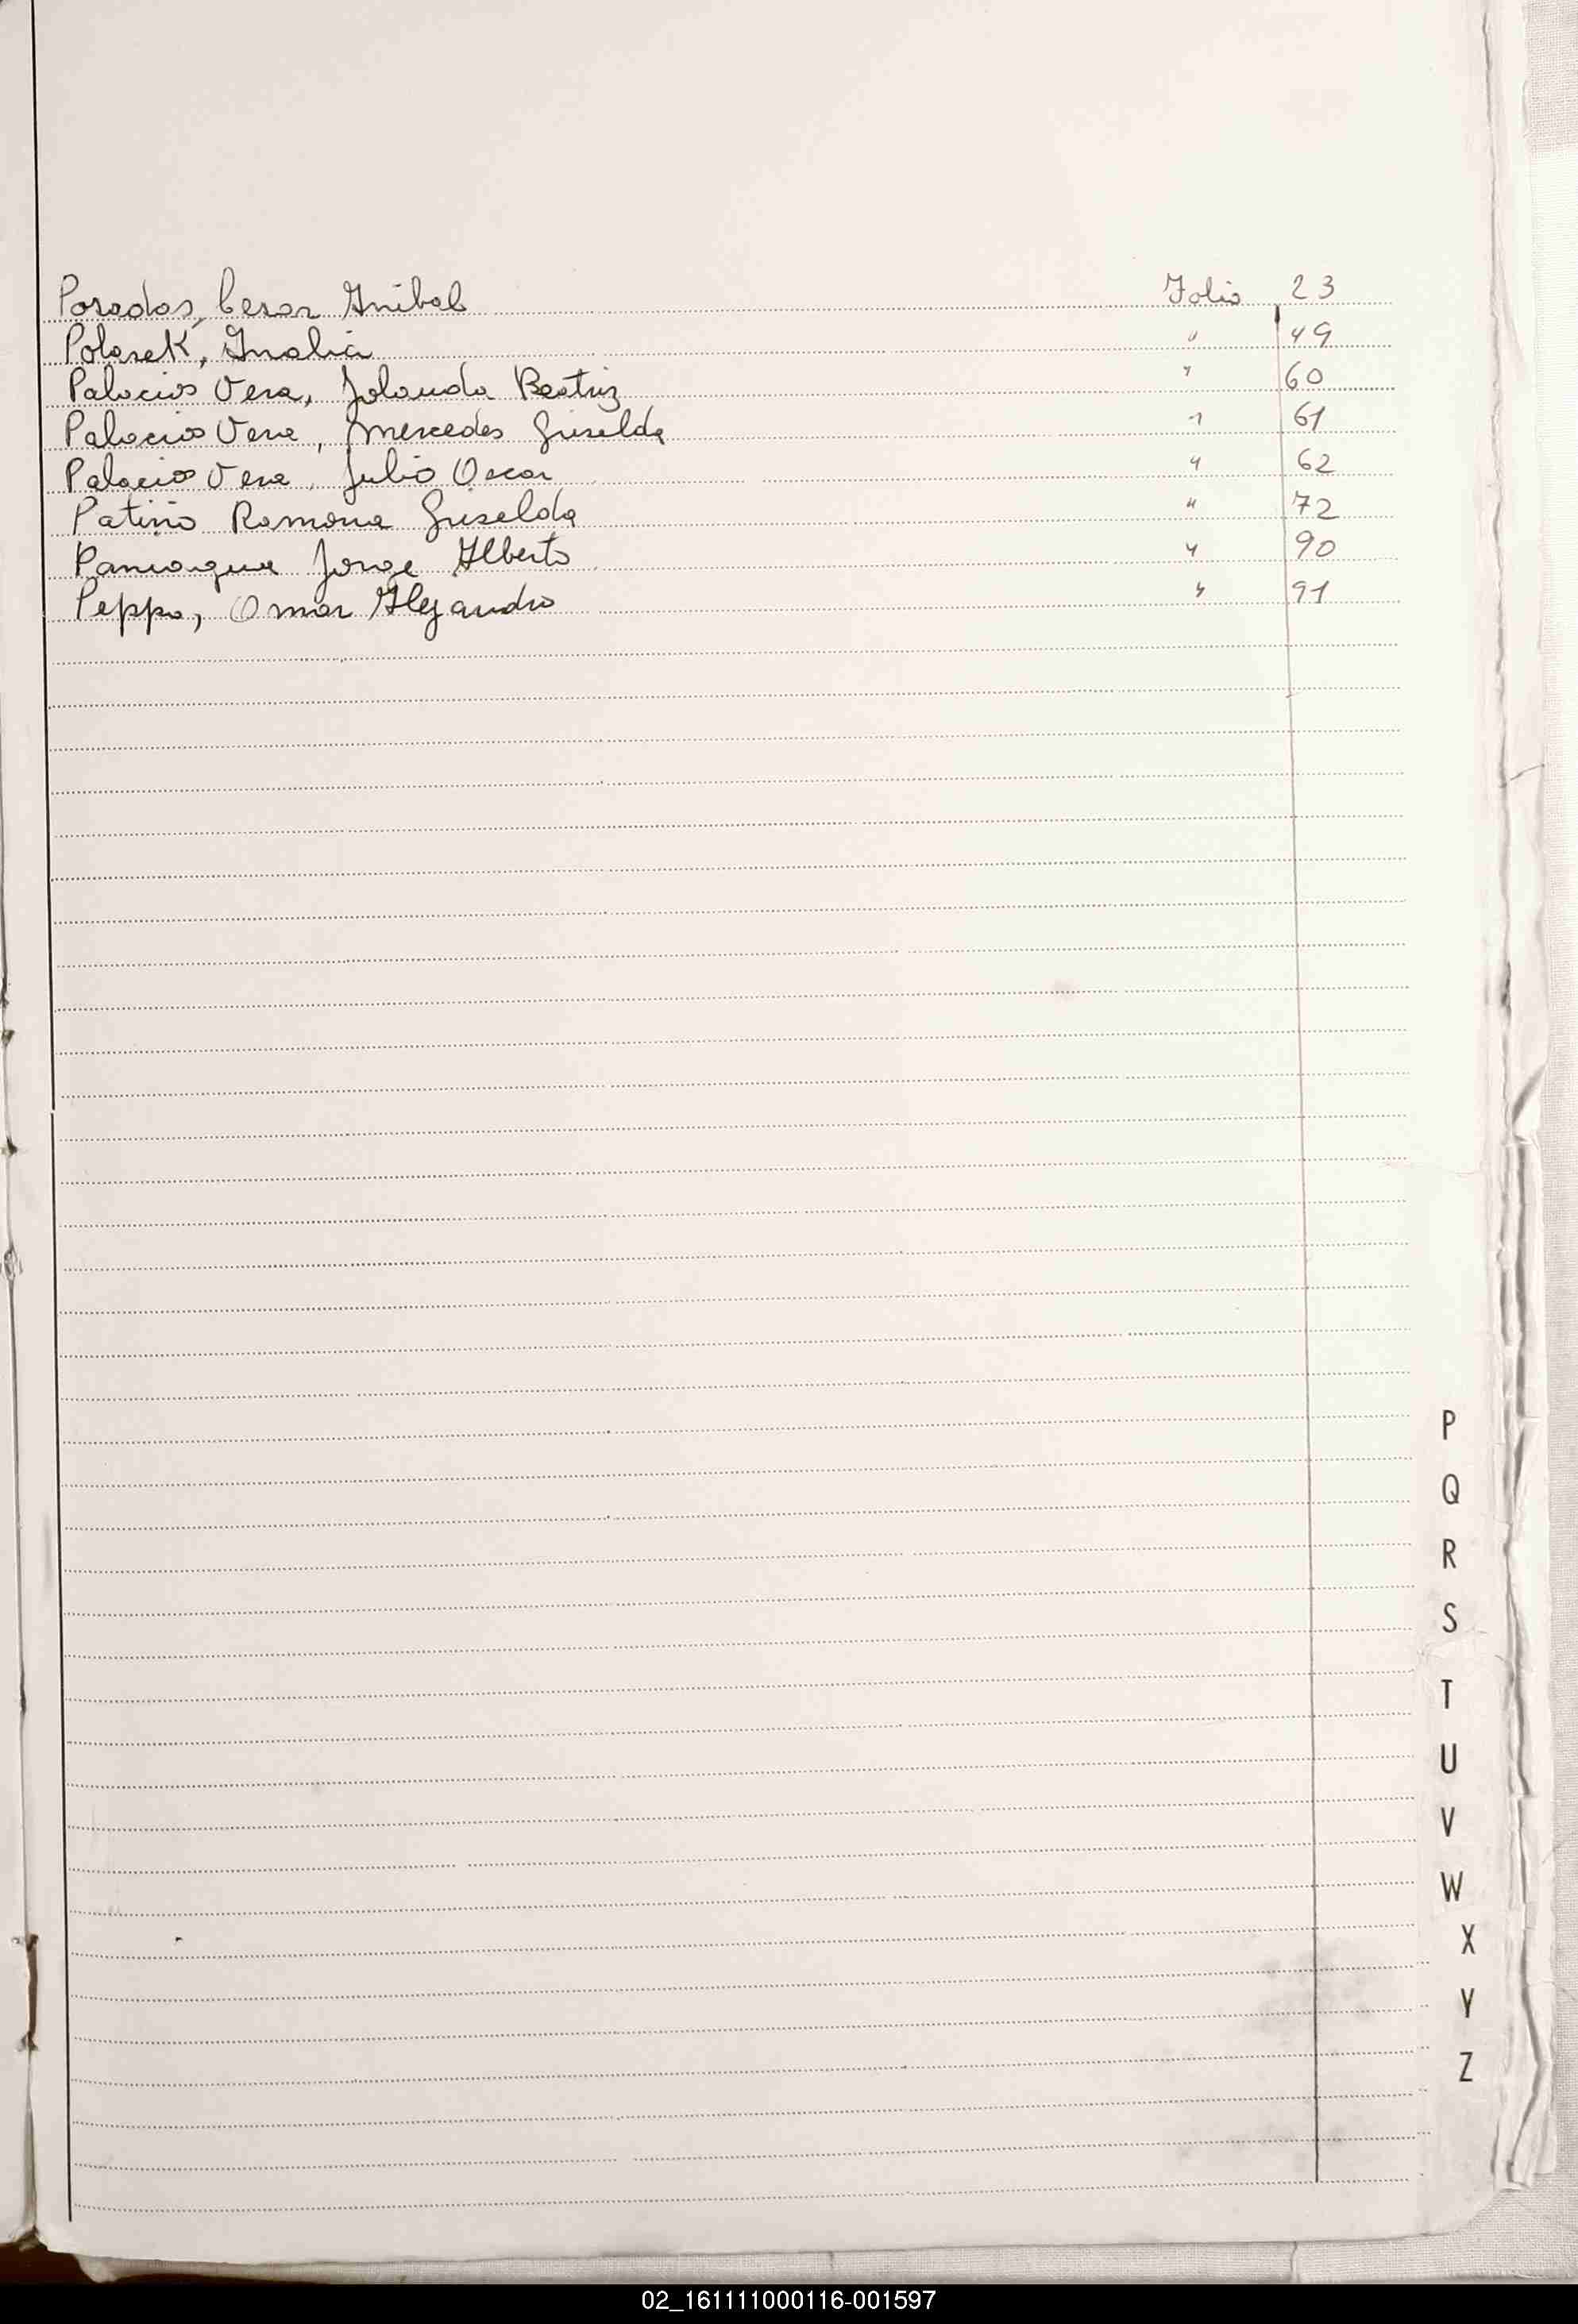 Posadas, Cesar Anibal Folio 23
Polasek, Analia " 49
Palacios Vera, Jolanda Beatriz " 60
Palacios Vera, Mercedes Griselda " 61
Palacios Vera, Julio Oscar " 62
Patiño Ramona Griselda " 72
Paniagua Jorge Alberto " 90
Peppo, Omar Alejandro " 91
P
Q
R
S
T
U
V
W
X
Y
Z
02_161111000116-001597